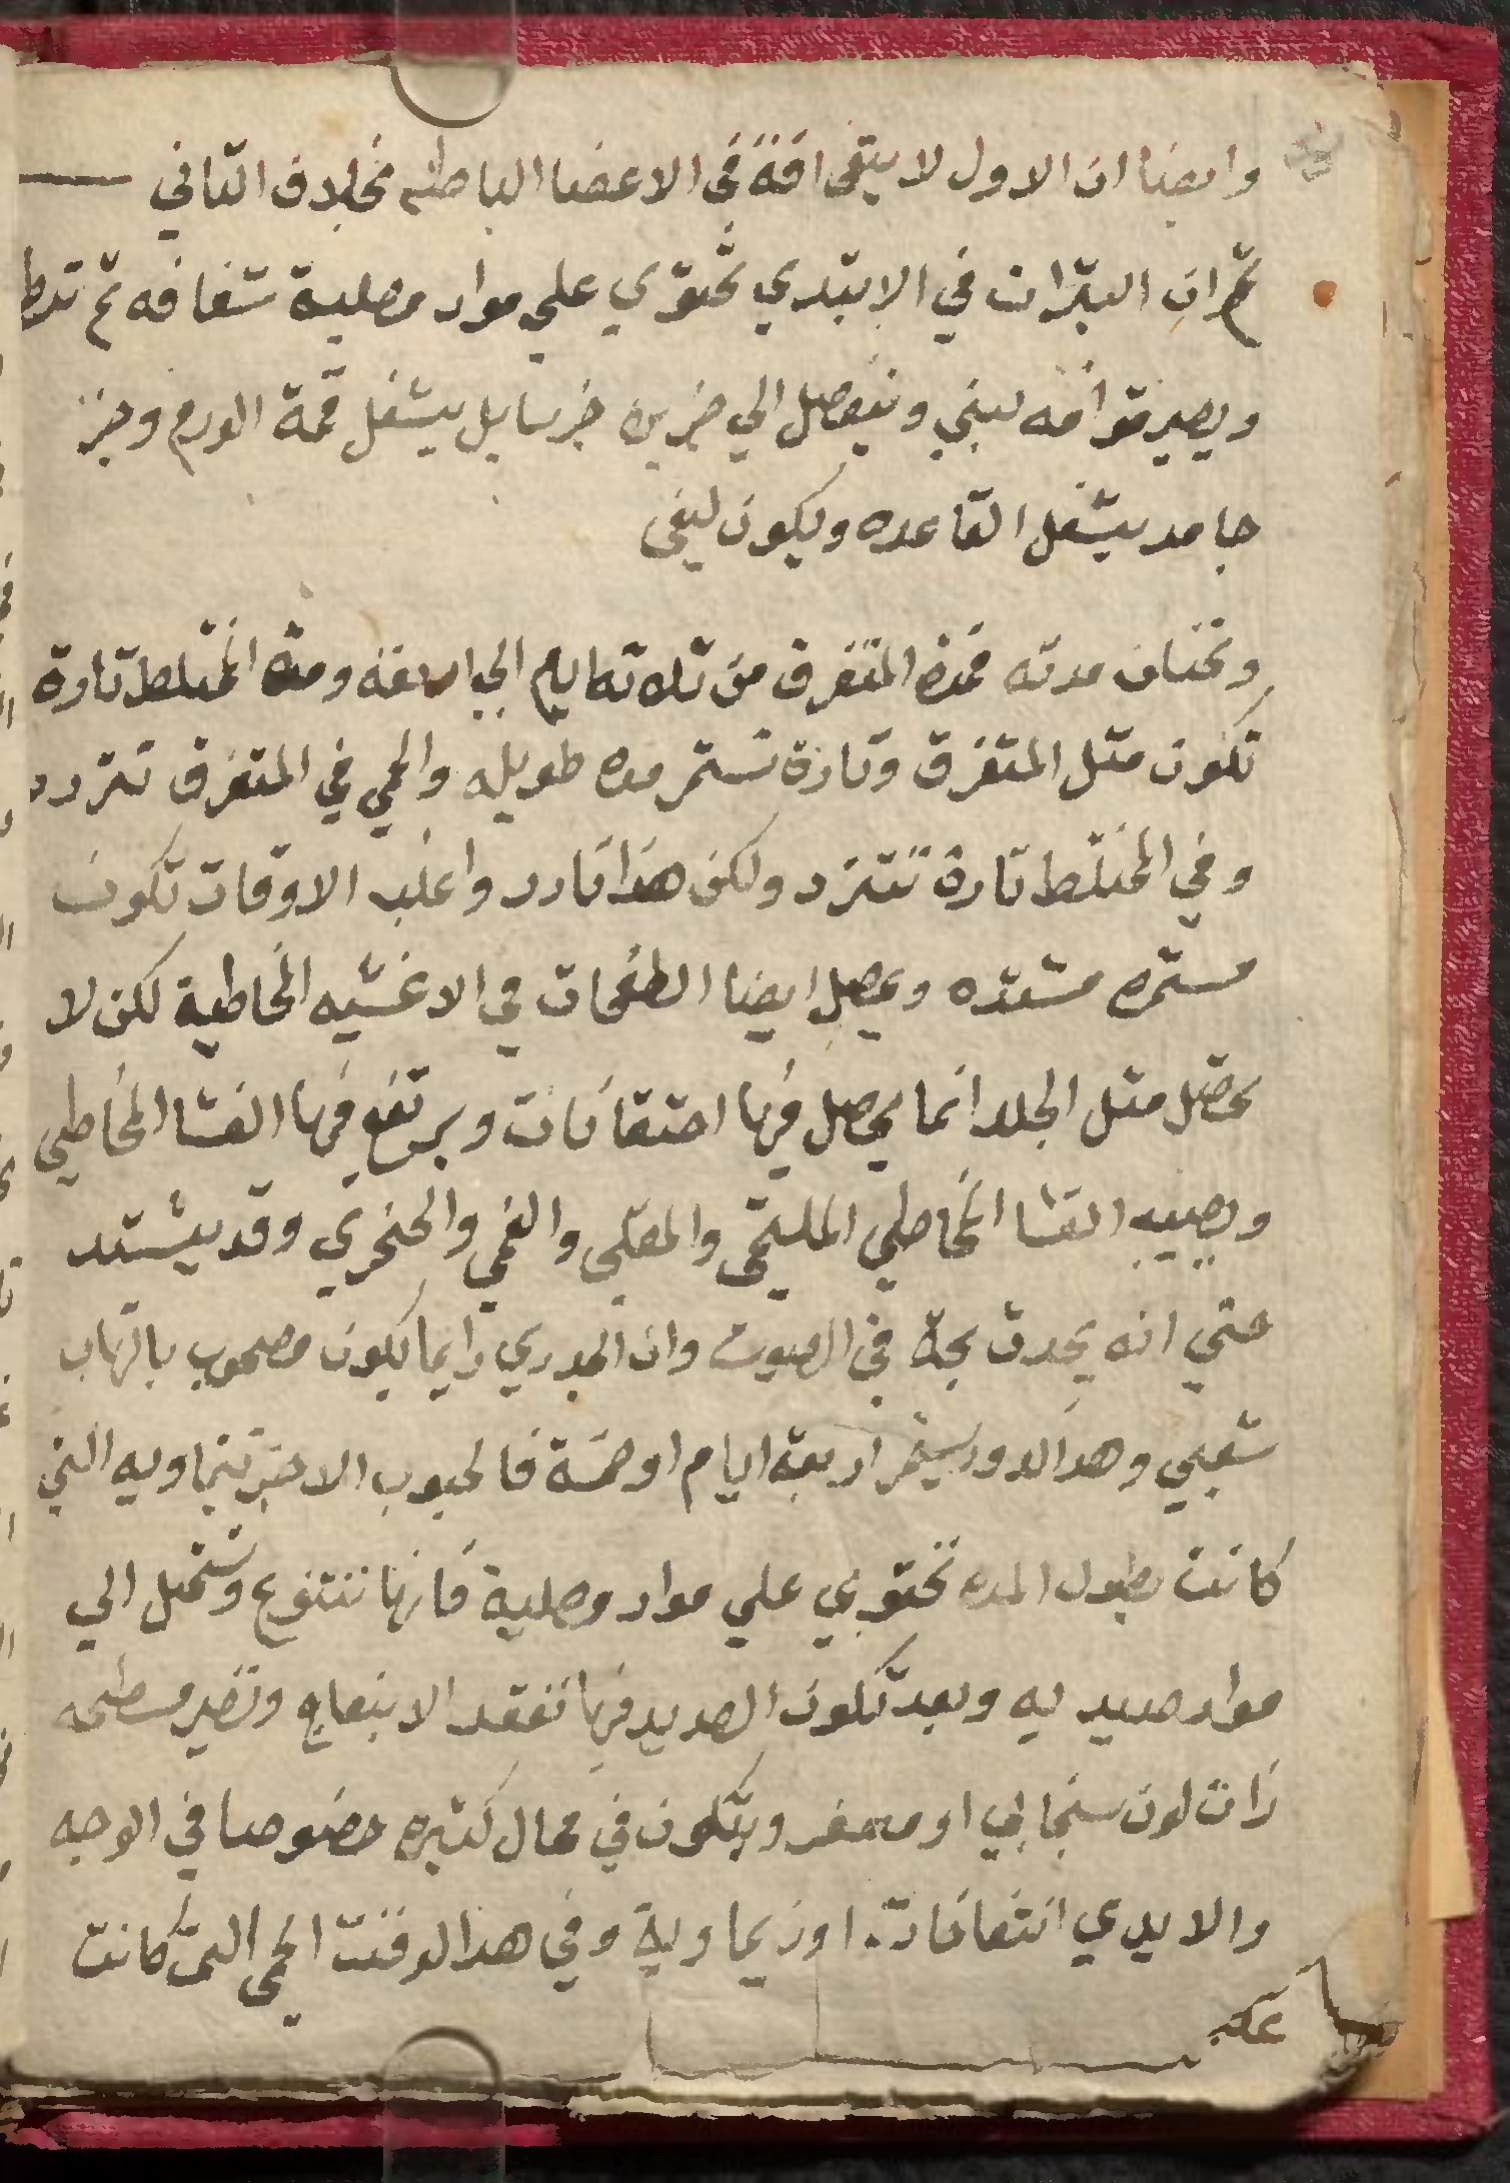 وايضا ان الاول لا يبقى افة في الاعضا الباطنه بخلاف التاني
ثم ان البترات في الابتدي تحتوي علي مواد مصلية شفافه ثم
ويصير قوامه لبني وينفصل الي جزين جز سايل يشغل قمة الورم وجز
جامد يشغل القاعده ويكون ليفى
وتختلف مدته فمدة المتفرق من تلاته ايام الي اربعه ومدة المختلط تارة
تكون متل المتفرق وتارة تستمر مده طويله والحمي في المتفرق تتردد
وفي المختلط تارة تتردد ولكن هذا نادر واغلب الاوقات تكون
مستمره مشتده ويحصل ايضا الطفحات في الاغشيه المخاطية لكن لا
تحصل متل الجلد انما يحصل فيها احتقانات ويرتفع فيها الغشا المخاطي
ويصيب الغشا المخاطي الملتحمى والمقلى والفمى والحنجري وقد يشتد
حتي انه يحدت بحة في الصوت وان الجدري دايما يكون مصحوب بالتهاب
شعبي وهذا الدور يستمر اربعة ايام او خمسة فالحبوب الاخيرتيماويه التي
كانت بطول المده تحتوي علي مواد مصلية فانها تتنوع وتستحيل الي
مواد صديديه وبعد تكون الصديد فيها تفقد الانبعاج وتصير مسطحه
ذات لون سنجابي او مصفر ويتكون في محال كتيره خصوصا في الوجه
والايدي انتفاخات اوزيماوية وفي هذا الوقت الحمى التي كانت